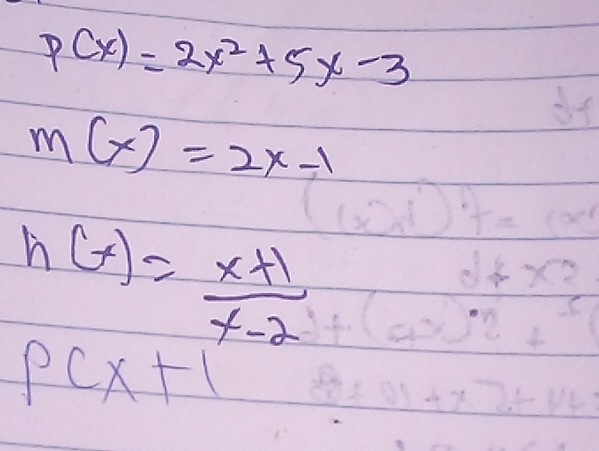 p(x) = 2x² + 5x - 3
m(x) = 2x - 1
h(x) = x+1
x-2
p(x+1